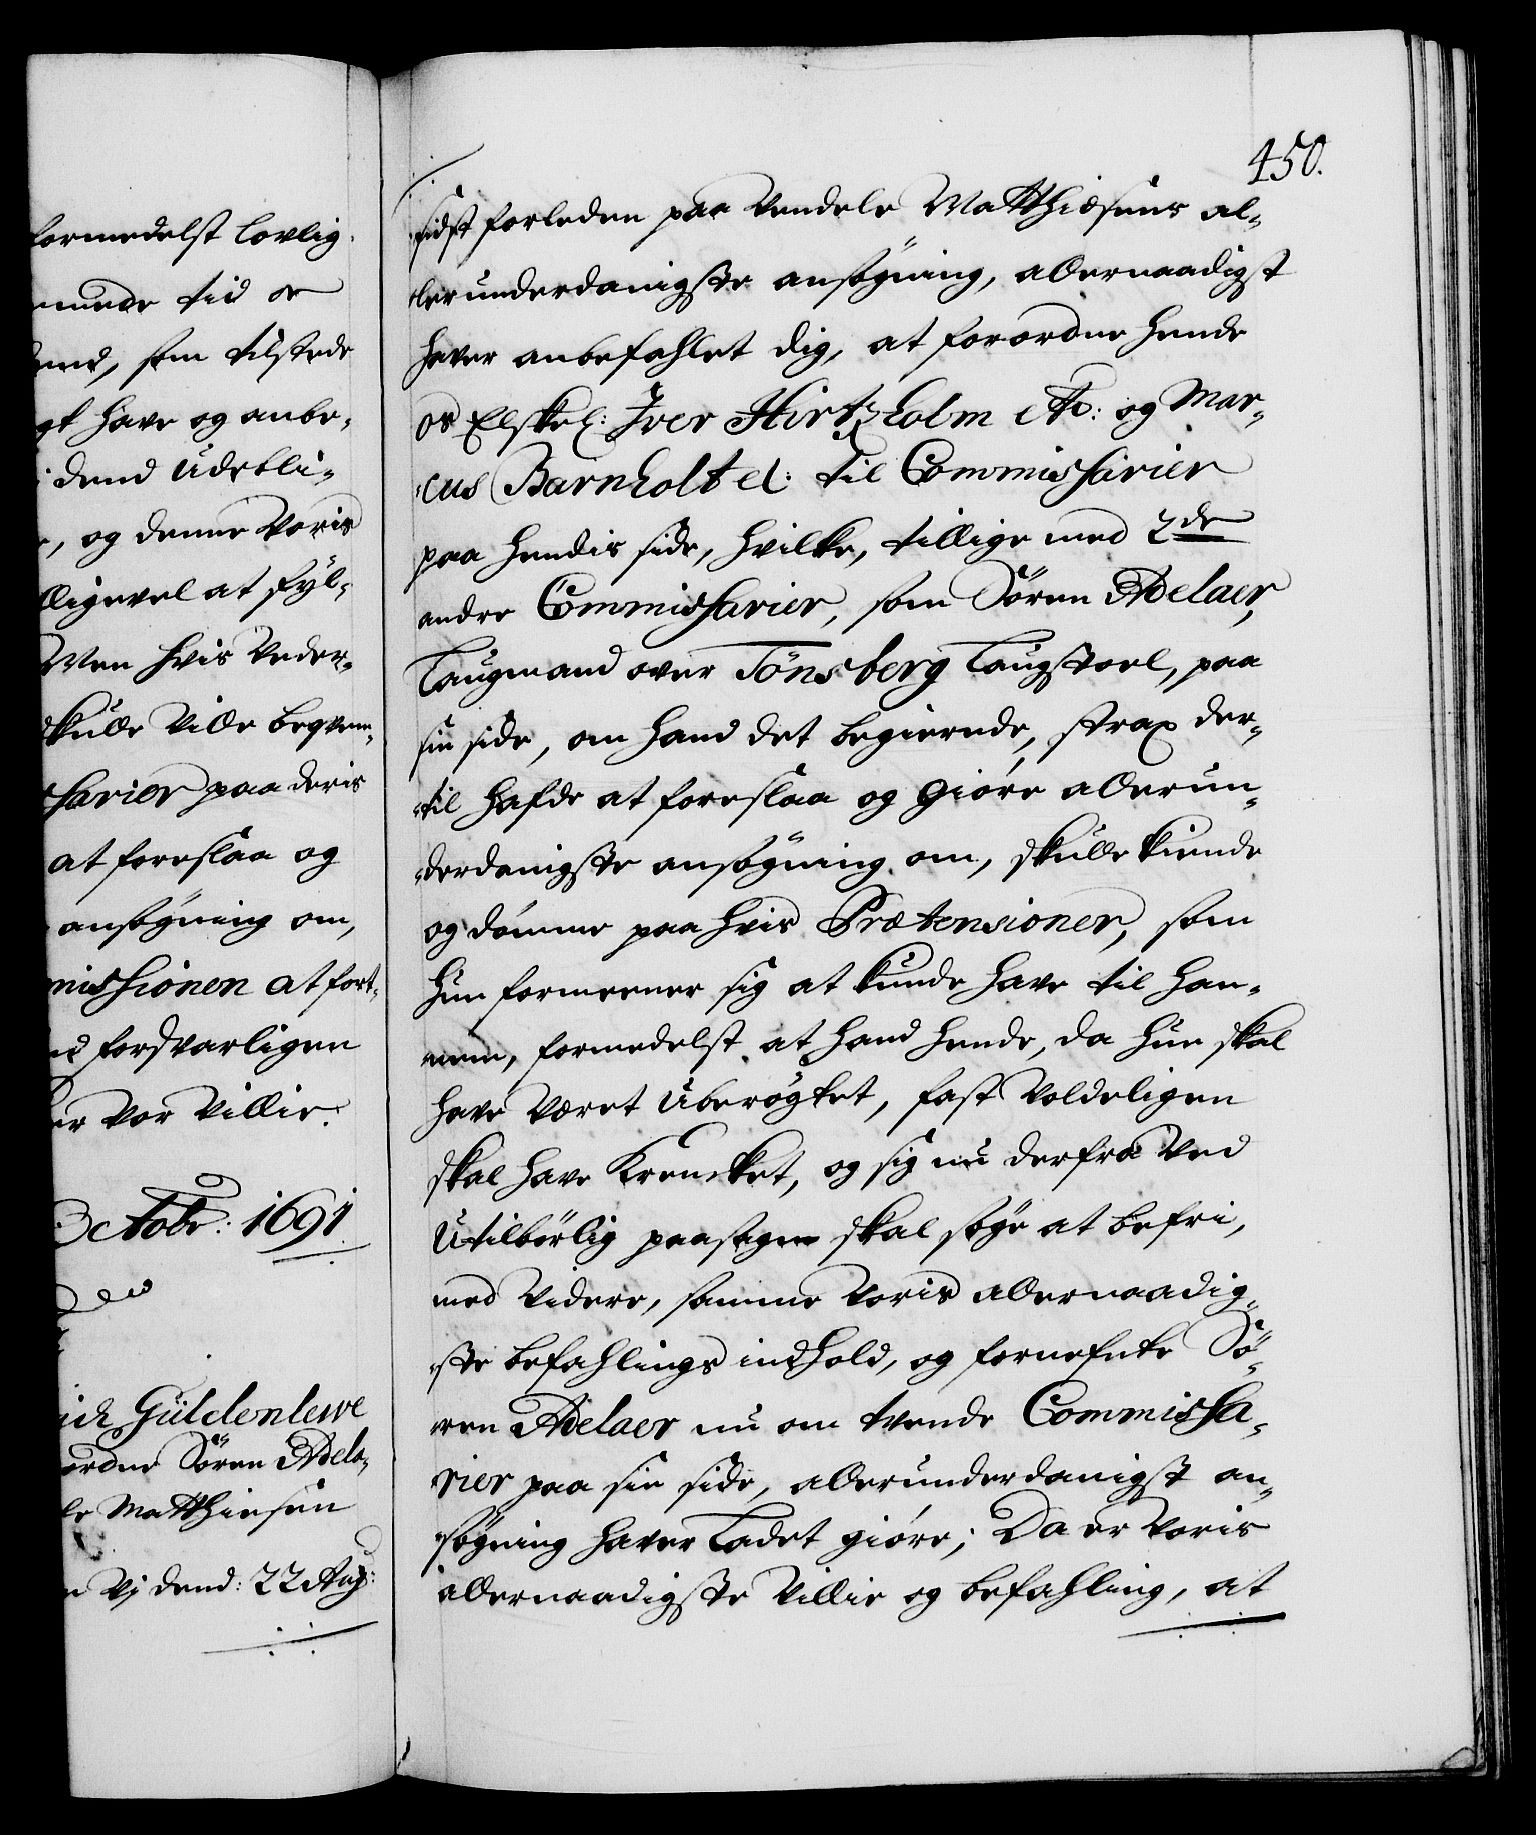 formedelst lovlig
mende tid or
end, som tilstede
gt have og anbe-
dend Udebli-
, og denne Voris
lligevel at fyl-
Men hvis Veder-
skulle Ville beqvem-
sarier paa deris
at foreslaa og
ansøgning om,
missionen at fort-
forsvarligen
er Vor Villie.
8 Octobr: 1691
Güldenlewe
ordne Søren Adela-
le Matthiesen
Vj dend: 22 Aug:
450.
sidst forleden paa Vendele Matthiesens al-
lerunderdanigste ansøgning, allernaadigst
haver anbefahlet dig, at forordne hende
os Elskel: Iver Hirtzholm etc: og Mar-
cus Barnholt el: til Commissarier
paa hendis side, hvilke, tillige med 2de
andre Commissarier, som Søren Adelaer,
Laugmand over Tönsberg Laugstoel, paa
sin side, om hand det begierende, strax der-
til hafde at foreslaa og giøre allerun-
derdanigste ansøgning om, skulle kiende
og dømme paa hvis Prætensioner, som
hun formeener sig at kunde have til han-
nem, formedelst at hand hende, da hun skal
have været Uberøgtet, fast Voldeligen
skal have Krencket, og sig nu derfra Ved
Utilbørlig paasagn skal søge at befri,
med Videre, samme Voris allernaadig-
ste befahlings indhold, og fornefnte Sö-
ren Adelaer nu om tvende Commissa-
rier paa sin side, allerunderdanigst an-
søgning haver Ladet giøre; Da er Voris
allernaadigste Villie og befahling, at